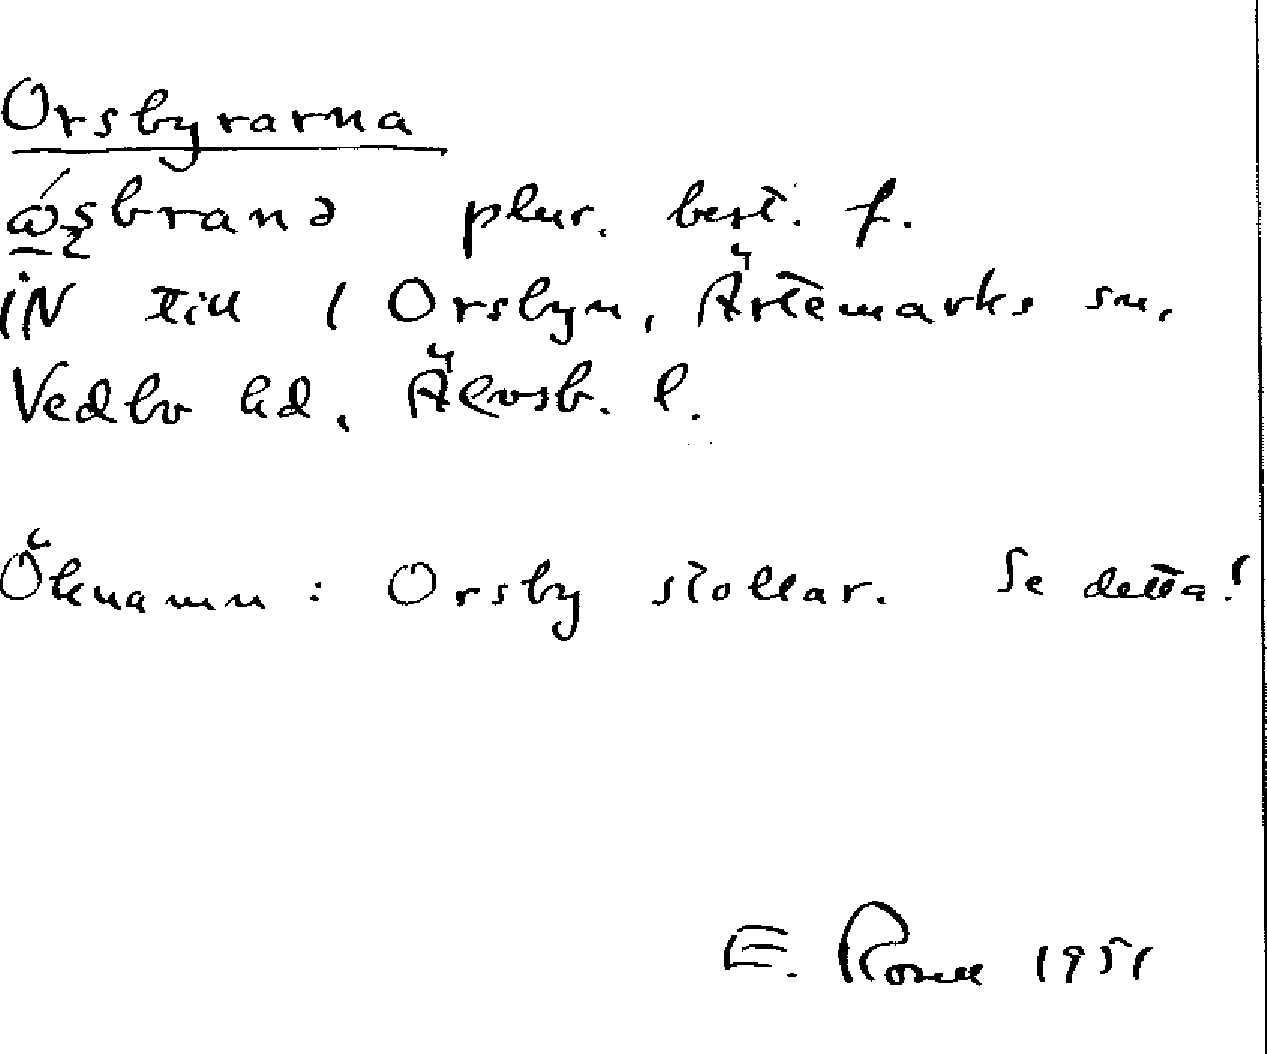 Orsbyrarna
plur. best. f.
IN till 1 Orsbyn, Ärtemarks sn,
Vedbo hd, Älvsb. l.
Öknamn : Orsby stollar. Se detta!
E. 1951